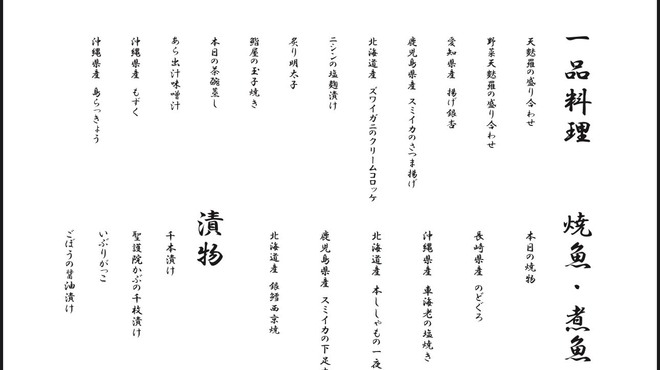 一品料理
天麩羅の盛り合わせ
野菜天麩羅の盛り合わせ
愛知県産 揚げ銀杏
鹿児島県産 スミイカのさつま揚げ
北海道産 ズワイガニのクリームコロッケ
ニシンの塩麹漬け
炙り明太子
鮨屋の玉子焼き
本日の茶碗蒸し
あら出汁味噌汁
沖縄県産 もずく
沖縄県産 島らっきょう
焼魚・煮魚
本日の焼物
長崎県産 のどぐろ
沖縄県産 車海老の塩焼き
北海道産 本ししゃもの一夜
鹿児島県産 スミイカの下足
北海道産 銀鱈西京焼
漬物
千本漬け
聖護院かぶの千枝漬け
いぶりがっこ
ごぼうの醤油漬け